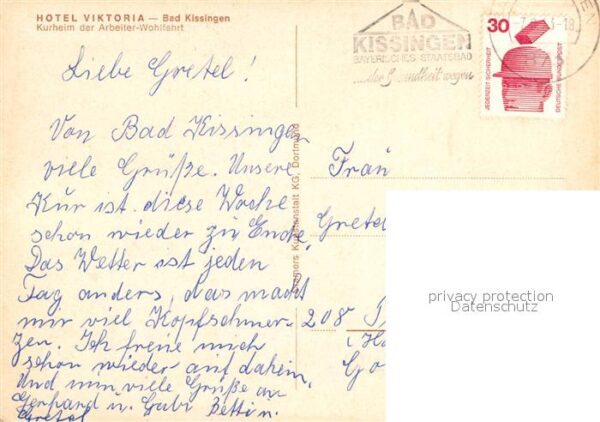 HOTEL VIKTORIA — Bad Kissingen
Kurheim der Arbeiter-Wohlfahrt
Liebe Gretel!
Von Bad Kissingen
viele Grüße. Unsere
Kur ist diese Woche
schon wieder zu Ende.
Das Wetter ist jeden
Tag anders, das macht
mir viel Kopfschmer-
zen. Ich freue mich
schon wieder auf daheim.
Und nun viele Grüße an
Gerhard u. Gabi Betti u.
Gretel
Kunstanstalt KG, Dortmund
BAD
KISSINGEN
BAYERISCHES STAATSBAD
...der Gesundheit wegen
30
JEDERZEIT SICHERHEIT
DEUTSCHE BUNDESPOST
Frau
Gretel
208
privacy protection
Datenschutz